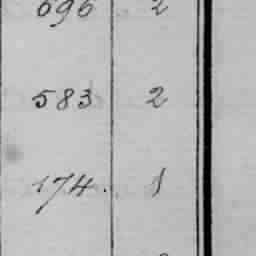 696 2
583 2
174. 1